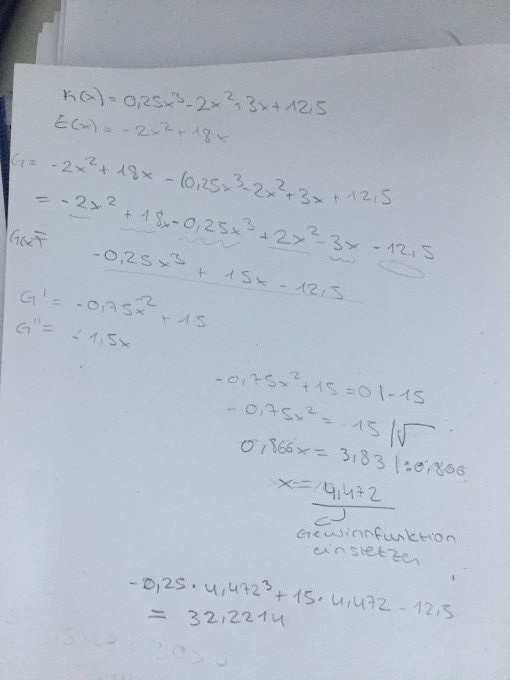 K(x) = 0,25x³ - 2x² + 3x + 12,5
E(x) = -2x² + 18x
G = -2x² + 18x - (0,25x³ - 2x² + 3x + 12,5
= -2x² + 18x - 0,25x³ + 2x² - 3x - 12,5
G(x) = -0,25x³ + 15x - 12,5
G' = -0,75x² + 15
G'' = -1,5x
-0,75x² + 15 = 0 | -15
-0,75x² = -15 | √
0,866x = 3,83 | :0,866
x = 4,472
Gewinnfunktion
einsetzen
-0,25 · 4,472³ + 15 · 4,472 - 12,5
= 32,2214